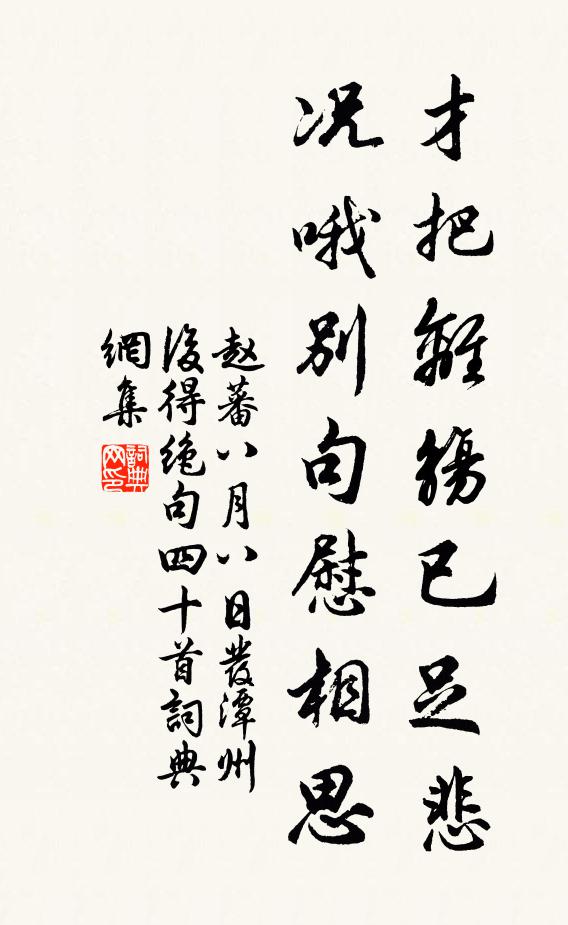 才把離觴已足悲
况哦別句慰相思
赵蕃八月八日發潭州
後得絶句四十首詞典
網集
詞典
网印